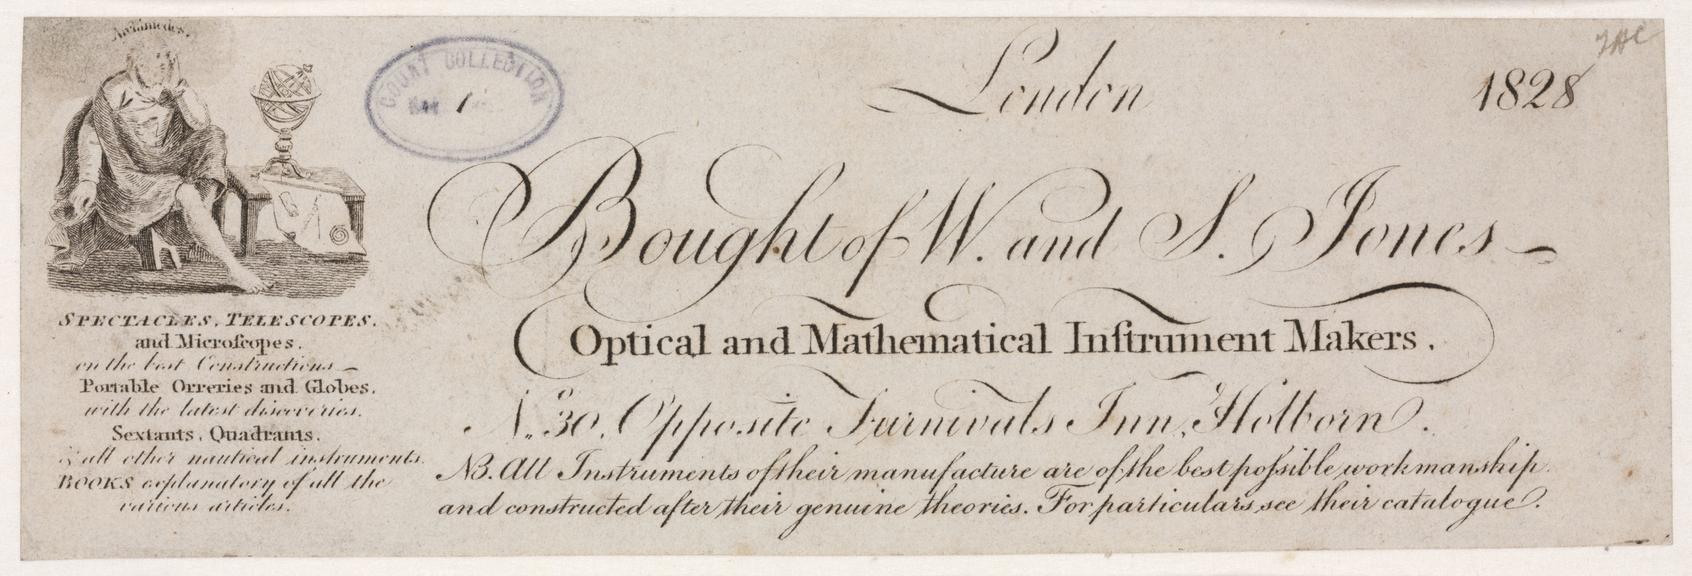 Archimedes.
COURT COLLECTION
London 1828
Bought of W. and S. Jones
Optical and Mathematical Inſtrument Makers.
No. 30, Opposite Furnivals Inn, Holborn.
NB. All Instruments of their manufacture are of the best poſsible workmanship
and constructed after their genuine theories. For particulars, see their catalogue.
SPECTACLES, TELESCOPES,
and Microſcopes,
on the best Constructions
Portable Orreries and Globes,
with the latest discoveries.
Sextants, Quadrants.
& all other nautical instruments.
BOOKS explanatory of all the
various articles.